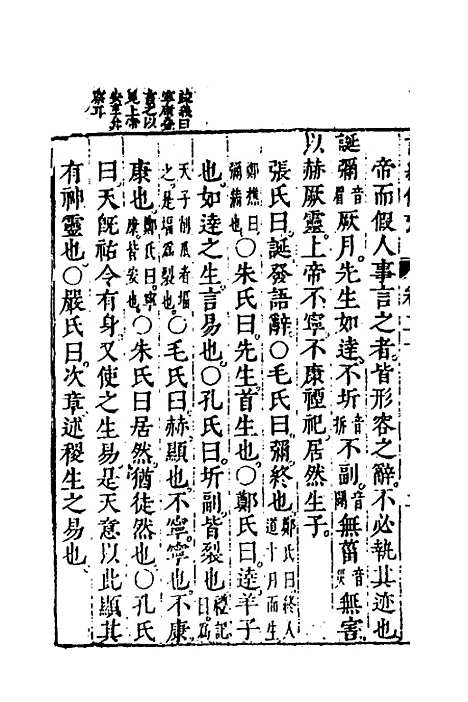 疏義曰
寧康
言之以
見上帝
安
帝而假人事言之者皆形容之辭不必執其迹也
誕彌音眉厥月先生如達不坼音拆不副音闢無菑音災無害
以赫厥靈上帝不寧不康禋祀居然生子
張氏曰誕發語辭○毛氏曰彌終也鄭氏曰終人道十月而生
鄭樵曰彌滿也○朱氏曰先生首生也○鄭氏曰達羊子
也如達之生言易也○孔氏曰坼副皆裂也禮記曰爲
天子削瓜者堛之是堛爲裂也○毛氏曰赫顯也不寧寧也不康
康也鄭氏曰寧康皆安也○朱氏曰居然猶徒然也○孔氏
曰天旣祐令有身又使之生易是天意以此顯其
有神靈也○嚴氏曰次章述稷生之易也